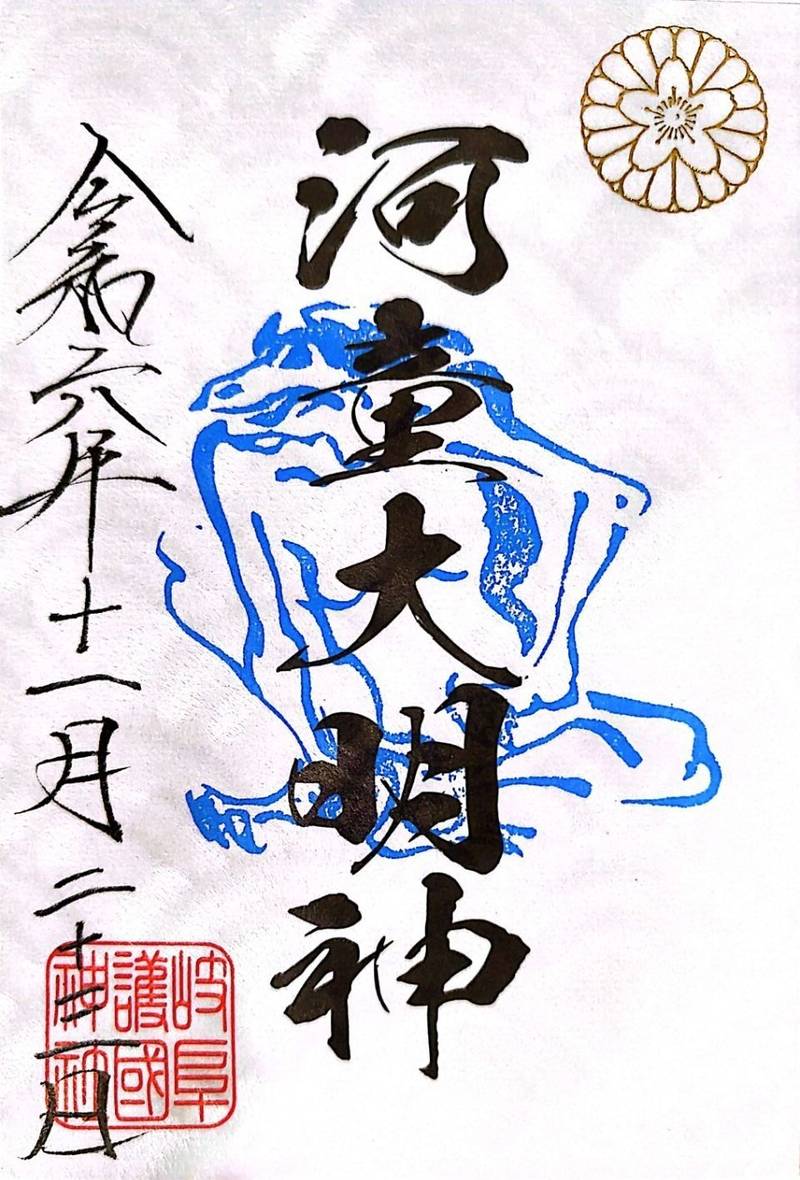 河童大明神
令和六年十一月二十三日
岐阜
護國
神社